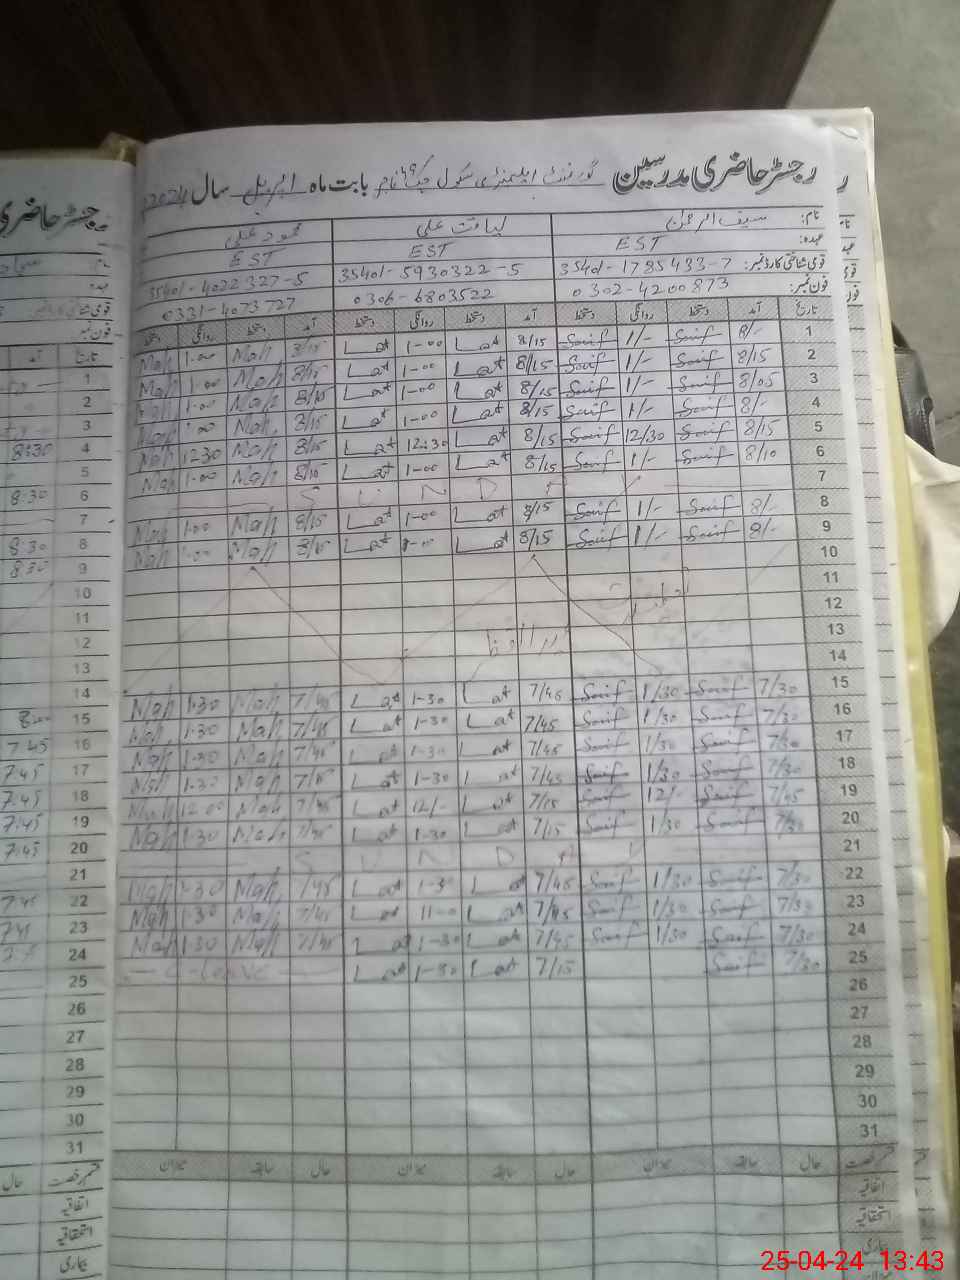 رجسٹر حاضری مدرسین گورنمنٹ ایلیمنٹری سکول چک بابت ماہ اپریل سال 2024
نام: سیف الرحمن لیاقت علی محمود علی
عہدہ: EST EST EST
قومی شناختی کارڈ نمبر: 35401-1785433-7 35401-5930322-5 35401-4022327-5
فون نمبر: 0302-4200873 0306-6803522 0331-4073727
تاریخ آمد دستخط روانگی دستخط آمد دستخط روانگی دستخط آمد دستخط روانگی دستخط
1 8/- Saif 1/- Saif 8/15 Lat 1-00 Lat 8/15 Mah 1-00 Mah
2 8/15 Saif 1/- Saif 8/15 Lat 1-00 Lat 8/15 Mah 1-00 Mah
3 8/05 Saif 1/- Saif 8/15 Lat 1-00 Lat 8/15 Mah 1-00 Mah
4 8/- Saif 1/- Saif 8/15 Lat 1-00 Lat 8/15 Mah 1-00 Mah
5 8/15 Saif 12/30 Saif 8/15 Lat 12:30 Lat 8/15 Mah 1230 Mah
6 8/10 Saif 1/- Saif 8/15 Lat 1-00 Lat 8/15 Mah 1-00 Mah
7 S U N D A Y
8 8/- Saif 1/- Saif 8/15 Lat 1-00 Lat 8/15 Mah 1-00 Mah
9 8/- Saif 1/- Saif 8/15 Lat 1-00 Lat 8/15 Mah 1-00 Mah
10
11
12
13
14
15 7/30 Saif 1/30 Saif 7/45 Lat 1-30 Lat 7/45 Mah 1-30 Mah
16 7/30 Saif 1/30 Saif 7/45 Lat 1-30 Lat 7/45 Mah 1-30 Mah
17 7/30 Saif 1/30 Saif 7/45 Lat 1-30 Lat 7/45 Mah 1-30 Mah
18 7/30 Saif 1/30 Saif 7/45 Lat 1-30 Lat 7/45 Mah 1-30 Mah
19 7/45 Saif 12/- Saif 7/15 Lat 12/- Lat 7/45 Mah 12-00 Mah
20 7/30 Saif 1/30 Saif 7/15 Lat 1-30 Lat 7/45 Mah 1-30 Mah
21 S U N D A Y
22 7/30 Saif 1/30 Saif 7/45 Lat 1-30 Lat 7/45 Mah 1-30 Mah
23 7/30 Saif 1/30 Saif 7/45 Lat 11-0 Lat 7/45 Mah 1-30 Mah
24 7/30 Saif 1/30 Saif 7/45 Lat 1-30 Lat 7/45 Mah 1-30 Mah
25 7/30 Saif 7/15 Lat 1-30 Lat C-Leave
26
27
28
29
30
31
قسم رخصت حال سابقہ میزان حال سابقہ میزان حال سابقہ میزان
اتفاقیہ
استحقاقیہ
بیماری
میزان
رجسٹر حاضری
نام:
عہدہ:
قومی شناختی کارڈ نمبر:
فون نمبر
تاریخ آمد
1
2
3
4 8:30
5
6 8:30
7
8 8:30
9 8:30
10
11
12
13
14
15 8:00
16 7:45
17 7:45
18 7:45
19 7:45
20 7:45
21
22 7:45
23 7:45
24
25
26
27
28
29
30
31
قسم رخصت حال
اتفاقیہ
استحقاقیہ
بیماری
25-04-24 13:43